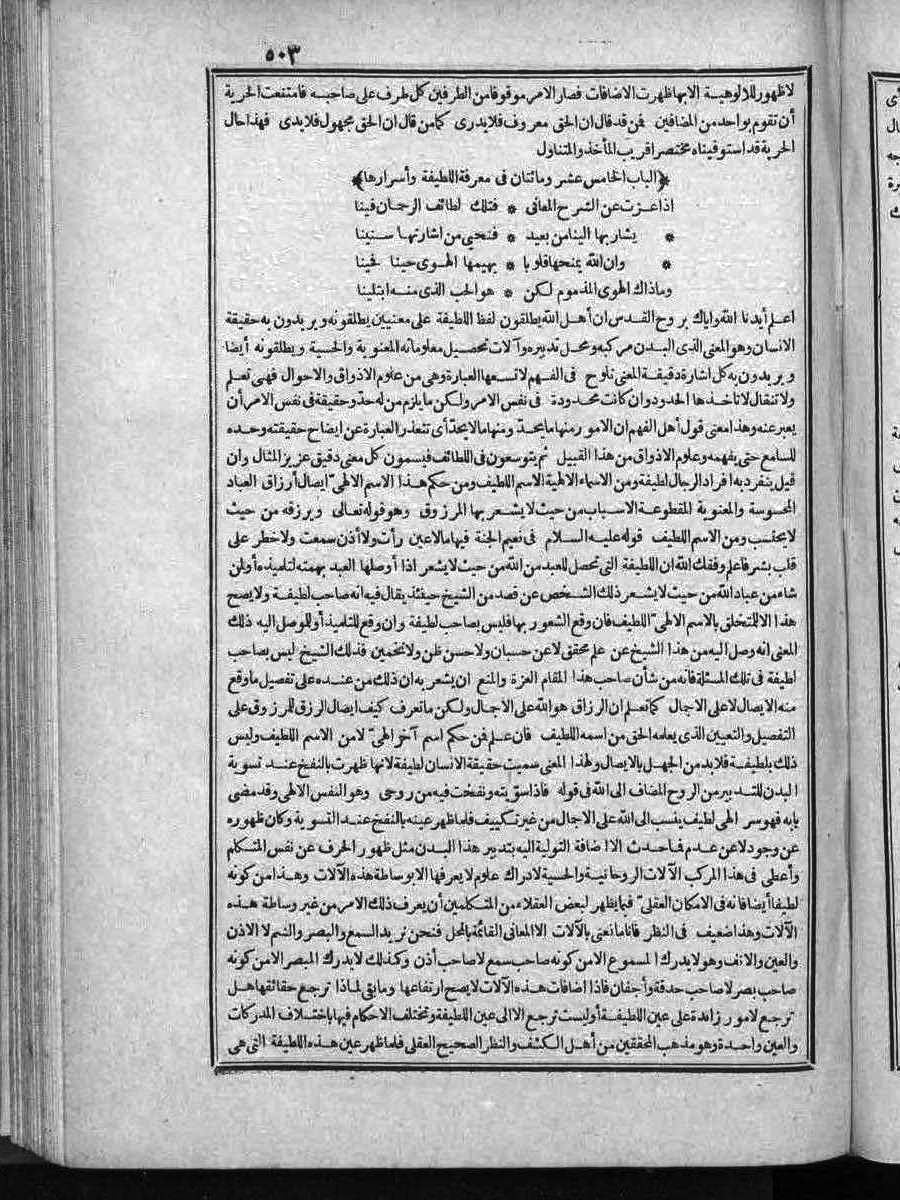 ٥٠٣
لا ظهور للالوهية الا بها ظهرت الاضافات فصار الامر موقوفا من الطرفين كل طرف على صاحبه فامتنعت الحرية
أن تقوم بواحد من المضافين فمن قد قال ان الحق معروف فلا يدرى كما من قال ان الحق مجهول فلا يدى فهذا حال
الحرية قد استوفيناه مختصرا قريب المأخذ والمتناول
﴿الباب الخامس عشر ومائتان فى معرفة اللطيفة وأسرارها﴾
اذا عزت عن الشرح المعانى * فتلك لطائف الرحمان فينا
* يشار بها الينا من بعيد * فنحيى من اشارتها سنينا
* وان الله يمنحها قلوبا * يهيمها الهوى حينا فحينا
وما ذاك الهوى المذموم لكن * هو الحب الذى منه ابتلينا
اعلم أيدنا الله واياك بروح القدس ان أهل الله يطلقون لفظ اللطيفة على معنيين يطلقونه ويريدون به حقيقة
الانسان وهو المعنى الذى البدن مركبه ومحل تدبيره وآلات تحصيل معلوماته المعنوية والحسية ويطلقونه أيضا
ويريدون به كل اشارة دقيقة المعنى تلوح فى الفهم لا تسعها العبارة وهى من علوم الاذواق والاحوال فهى تعلم
ولا تنقال لا تأخذها الحدود وان كانت محدودة فى نفس الامر ولكن ما يلزم من له حد وحقيقة فى نفس الامر أن
يعبر عنه وهذا معنى قول أهل الفهم ان الامور منها ما يحد ومنها ما لا يحد أى تتعذر العبارة عن ايضاح حقيقته وحده
للسامع حتى يفهمه وعلوم الاذواق من هذا القبيل ثم يتوسعون فى اللطائف فيسمون كل معنى دقيق عزيز المثال وان
قيل ينفرد به افراد الرجال لطيفة ومن الاسماء الالهية الاسم اللطيف ومن حكم هذا الاسم الالهى ايصال أرزاق العباد
المحسوسة والمعنوية المقطوعة الاسباب من حيث لا يشعر بها المرزوق وهو قوله تعالى ويرزقه من حيث
لا يحتسب ومن الاسم اللطيف قوله عليه السلام فى نعيم الجنة فيها ما لا عين رأت ولا أذن سمعت ولا خطر على
قلب بشر فاعلم وفقك الله ان اللطيفة التى تحصل للعبد من الله من حيث لا يشعر اذا أوصلها العبد بهمته لتلميذه أو لمن
شاء من عباد الله من حيث لا يشعر ذلك الشخص عن قصد من الشيخ حينئذ يقال فيه انه صاحب لطيفة ولا يصح
هذا الا للمتخلق بالاسم الالهى اللطيف فان وقع الشعور بها فليس بصاحب لطيفة وان وقع للتلميذ أو للموصل اليه ذلك
المعنى انه وصل اليه من هذا الشيخ عن علم محقق لا عن حسبان ولا حسن ظن ولا تخمين فذلك الشيخ ليس بصاحب
لطيفة فى تلك المسئلة فانه من شأن صاحب هذا المقام العزة والمنع ان يشعر به ان ذلك من عنده على تفصيل ما وقع
منه الايصال لا على الاجمال كما تعلم ان الرزاق هو الله على الاجمال ولكن ما تعرف كيف ايصال الرزق للمرزوق على
التفصيل والتعيين الذى يعلمه الحق من اسمه اللطيف فان علم فمن حكم اسم آخر الهى لا من الاسم اللطيف وليس
ذلك بلطيفة فلا بد من الجهل بالايصال ولهذا المعنى سميت حقيقة الانسان لطيفة لانها ظهرت بالنفخ عند تسوية
البدن للتدبير من الروح المضاف الى الله فى قوله فاذا سويته ونفخت فيه من روحى وهو النفس الالهى وقد مضى
بابه فهو سر الهى لطيف ينسب الى الله على الاجمال من غير تكييف فلما ظهر عينه بالنفخ عند التسوية وكان ظهوره
عن وجود لا عن عدم فما حدث الا اضافة التولية اليه بتدبير هذا البدن مثل ظهور الحرف عن نفس المتكلم
وأعطى فى هذا المركب الآلات الروحانية والحسية لادراك علوم لا يعرفها الا بوساطة هذه الآلات وهذا من كونه
لطيفا أيضا فانه فى الامكان العقلى فيما يظهر لبعض العقلاء من المتكلمين أن يعرف ذلك الامر من غير وساطة هذه
الآلات وهذا ضعيف فى النظر فانا ما نعنى بالآلات الا المعانى القائمة بالمحل فنحن نريد السمع والبصر والشم لا الاذن
والعين والانف وهو لا يدرك المسموع الا من كونه صاحب سمع لا صاحب أذن وكذلك لا يدرك المبصر الا من كونه
صاحب بصر لا صاحب حدقة وأجفان فاذا اضافات هذه الآلات لا يصح ارتفاعها وما بقى لماذا ترجع حقائقها هل
ترجع لامور زائدة على عين اللطيفة أو ليست ترجع الا الى عين اللطيفة وتختلف الاحكام فيها باختلاف المدركات
والعين واحدة وهو مذهب المحققين من أهل الكشف والنظر الصحيح العقلى فلما ظهر عين هذه اللطيفة التى هى